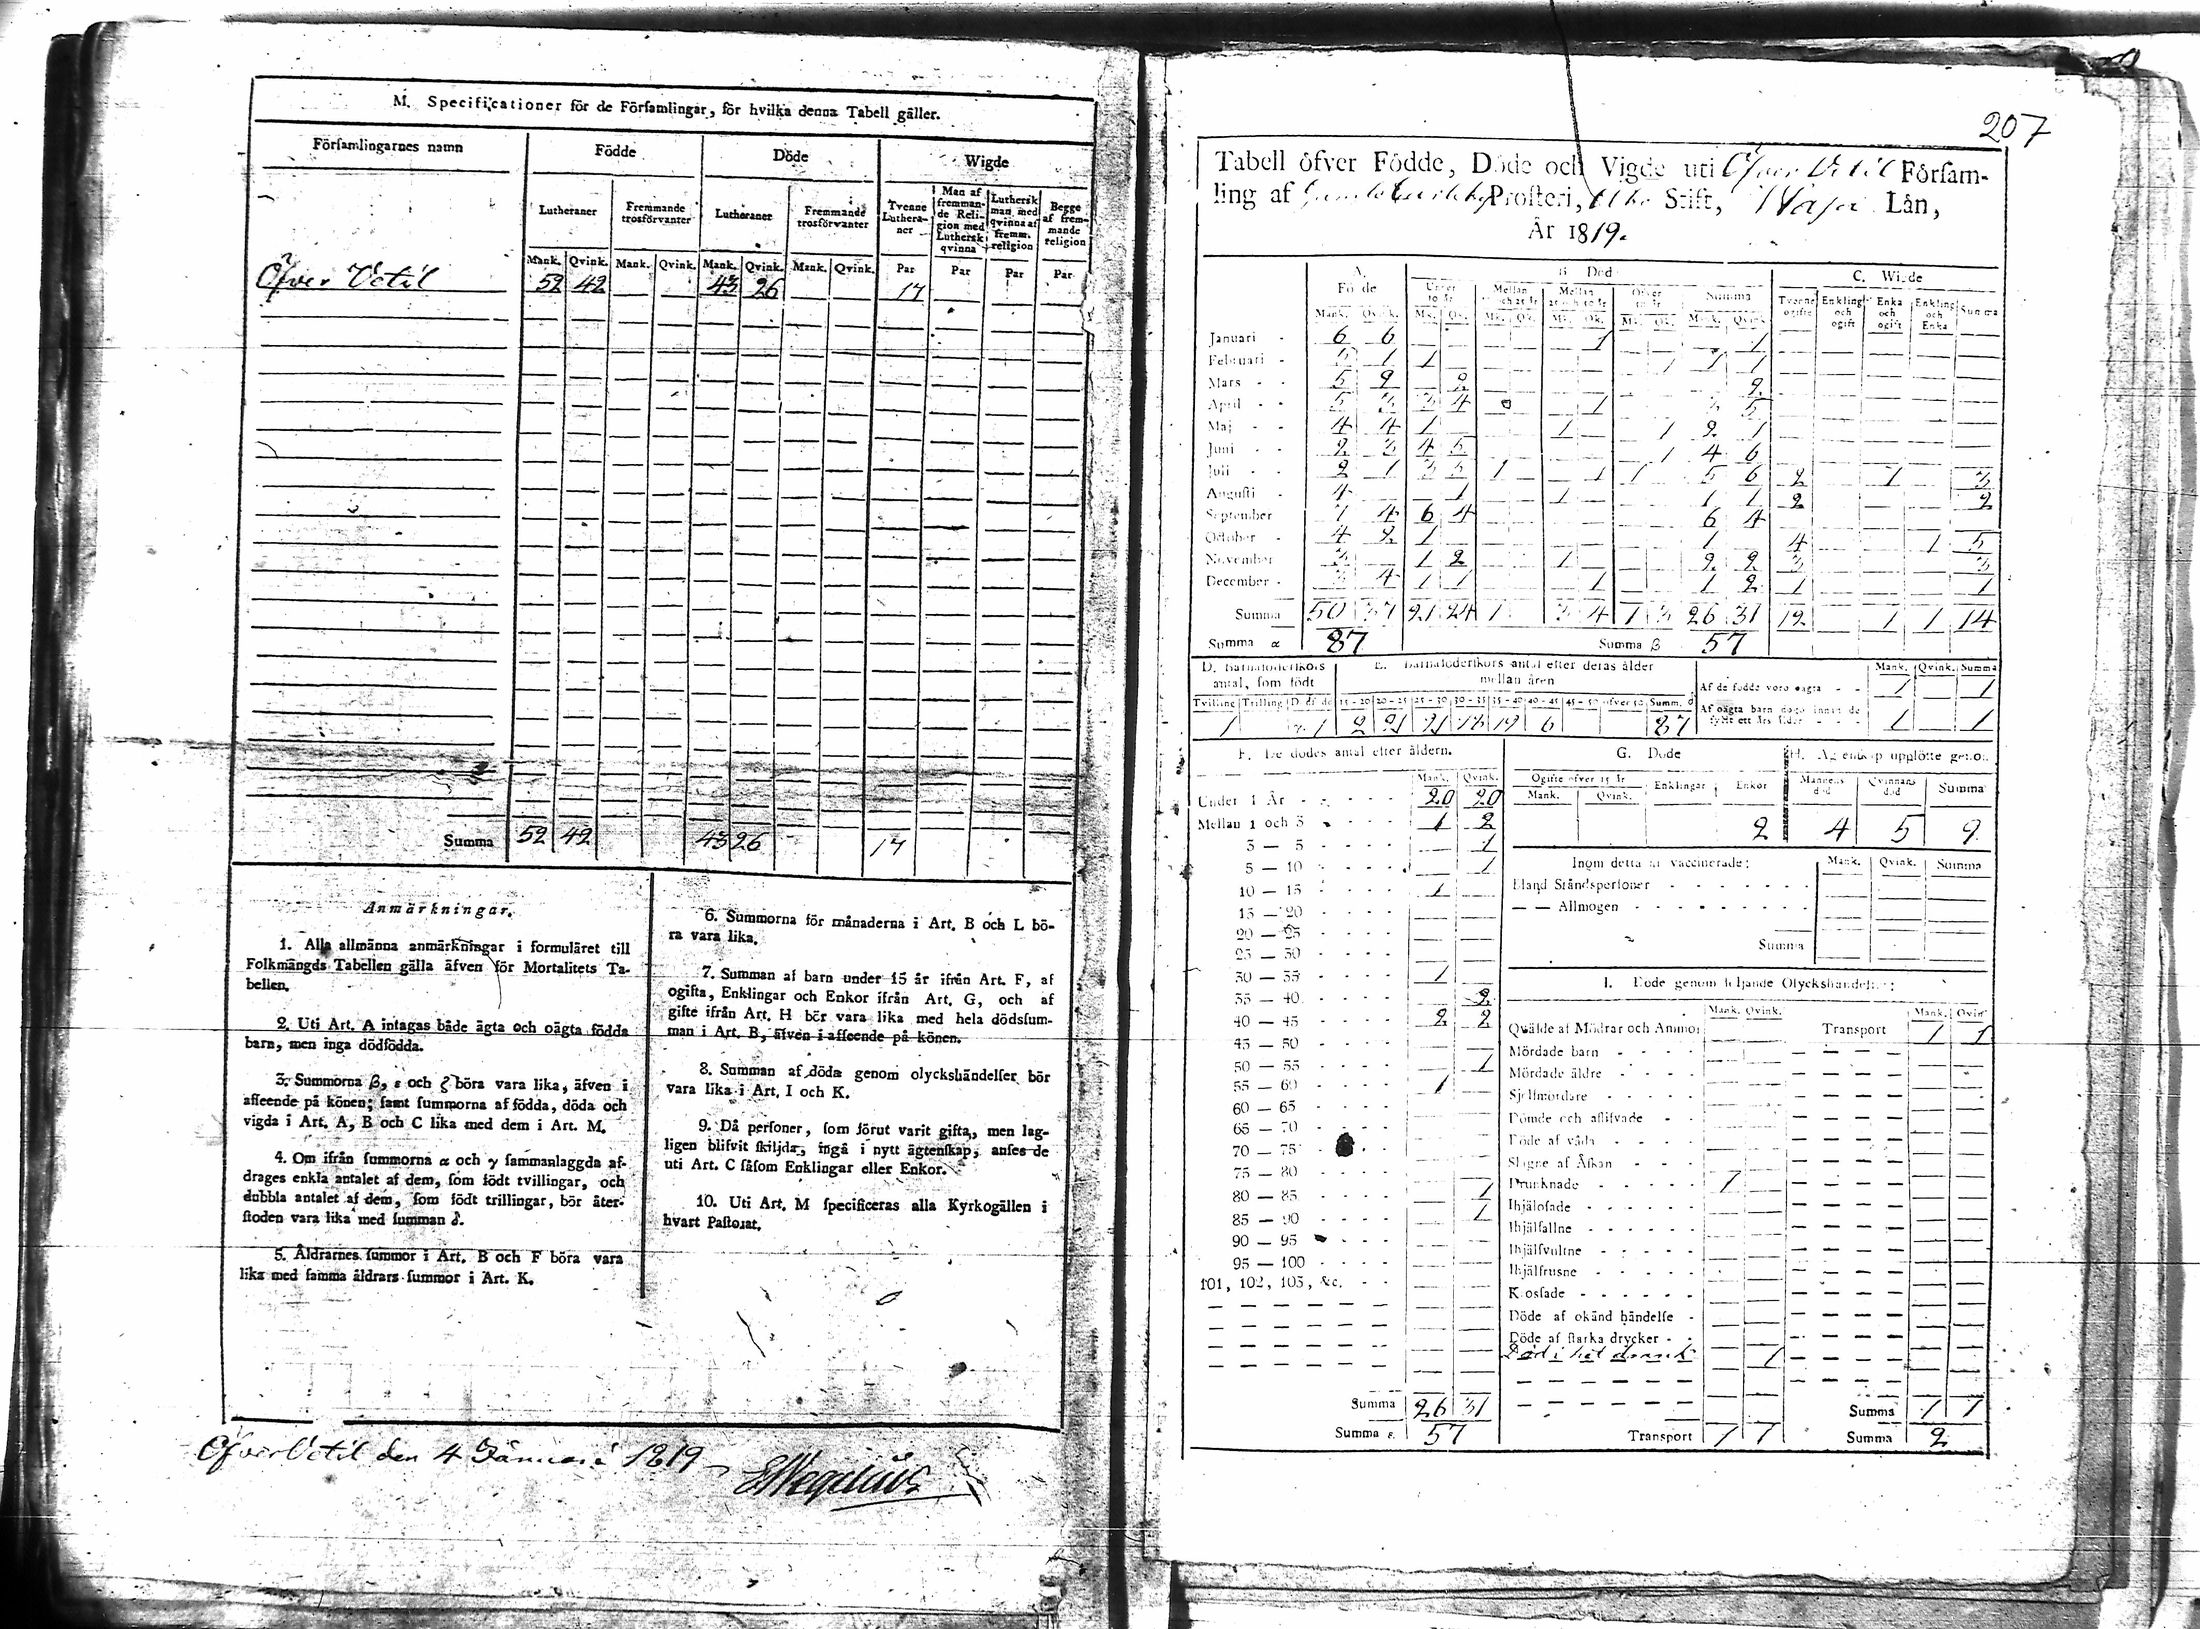 M. Specificationer för de Församlingar, för hvilka denna Tabell gäller.
Församlingarnes namn Födde Döde Wigde
Lutheraner Fremmande trosförvanter Lutheraner Fremmande trosförvanter Tvenne Lutheraner Man af fremmande Religion med Luthersk qvinna Luthersk man med qvinna af fremm. religion Begge af fremmande religion
Mank. Qvink. Mank. Qvink. Mank. Qvink. Mank. Qvink. Par Par Par Par
Öfver Vetil 52 42 43 26 17
Summa 52 42 43 26 17
Anmärkningar.
1. Alla allmänna anmärkningar i formuläret till
Folkmängds Tabellen gälla äfven för Mortalitets Ta-
bellen.
2. Uti Art. A intagas både ägta och oägta födda
barn, men inga dödfödda.
3. Summorna β, ε och ζ böra vara lika, äfven i
afseende på könen; samt summorna af födda, döda och
vigda i Art. A, B och C lika med dem i Art. M.
4. Om ifrån summorna α och γ sammanlaggda af-
drages enkla antalet af dem, som födt tvillingar, och
dubbla antalet af dem, som födt trillingar, bör åter-
stoden vara lika med summan δ.
5. Åldrarnes summor i Art. B och F böra vara
lika med samma åldrars summor i Art. K.
6. Summorna för månaderna i Art. B och L bö-
ra vara lika.
7. Summan af barn under 15 år ifrån Art. F, af
ogifta, Enklingar och Enkor ifrån Art. G, och af
gifte ifrån Art. H bör vara lika med hela dödssum-
man i Art. B, äfven i afseende på könen.
8. Summan af döda genom olyckshändelser bör
vara lika i Art. I och K.
9. Då personer, som förut varit gifta, men lag-
ligen blifvit skiljda, ingå i nytt ägtenskap, anses de
uti Art. C såsom Enklingar eller Enkor.
10. Uti Art. M specificeras alla Kyrkogällen i
hvart Pastorat.
Öfver Vetil den 4 Januari 1819
E Wegelius
207
Tabell öfver Födde, Döde och Vigde uti Öfver Vetil Församling
af Gamla Carleby Prosteri, Åbo Stift, Wasa Län,
År 1819.
A. Födde B. Döde C. Wigde
Under 10 år Mellan 10 och 25 år Mellan 25 och 50 år Öfver 50 år Summa Tvenne ogifte Enkling och ogift Enka och ogift Enkling och Enka Summa
Mank. Qvink. Mk. Qk. Mk. Qk. Mk. Qk. Mk. Qk. Mank. Qvink.
Januari 6 6 1 1
Februari 5 1 1 1 1 1
Mars 5 9 2 2
April 5 3 3 4 1 3 5
Maj 4 4 1 1 1 2 1
Juni 2 3 4 5 1 4 6
Juli 2 1 3 5 1 1 1 5 6 2 1 3
Augusti 4 1 1 1 1 2 2
September 7 4 6 4 6 4
October 4 2 1 1 4 1 5
November 3 1 2 1 2 2 3 3
December 3 4 1 1 1 1 2 1 1
Summa 50 37 21 24 1 3 4 1 3 26 31 12 1 1 14
Summa α 87 Summa β 57
D. Barnaföderskors antal, som födt
Tvilling Trilling
E. Barnaföderskors antal efter deras ålder mellan åren
15 - 20 20 - 25 25 - 30 30 - 35 35 - 40 40 - 45 45 - 50 öfver 50 Summ. δ
Mank. Qvink. Summa
Af de födde voro oägta 1 1
Af oägta barn dogo innan de fyllt ett års ålder 1 1
F. De dödes antal efter åldern.
Mank. Qvink.
Under 1 År 20 20
Mellan 1 och 3 1 2
3 — 5 1
5 — 10 1
10 — 15 1
15 — 20
20 — 25
25 — 30
30 — 35 1
35 — 40 2
40 — 45 2 2
45 — 50
50 — 55 1
55 — 60 1
60 — 65
65 — 70
70 — 75
75 — 80
80 — 85 1
85 — 90 1
90 — 95
95 — 100
101, 102, 103, &c.
Summa 26 31
Summa ε. 57
G. Döde
Ogifte öfver 15 år Enklingar Enkor
Mank. Qvink.
2
H. Ägtenskap upplöste genom
Mannens död Qvinnans död Summa
4 5 9
Inom detta år vaccinerade: Mank. Qvink. Summa
Bland Ståndspersoner
— — Allmogen
Summa
I. Döde genom följande Olyckshändelser:
Mank. Qvink. Mank. Qvink.
Qväfde af Mödrar och Ammor Transport 1 1
Mördade barn
Mördade äldre
Sjelfmördare
Dömde och aflifvade
Döde af våda
Slagne af Åskan
Drunknade 1
Ihjälosade
Ihjälfallne
Ihjälsvultne
Ihjälfrusne
Krossade
Döde af okänd händelse
Döde af starka drycker
1
Summa 1 1
Transport 1 1 Summa 2